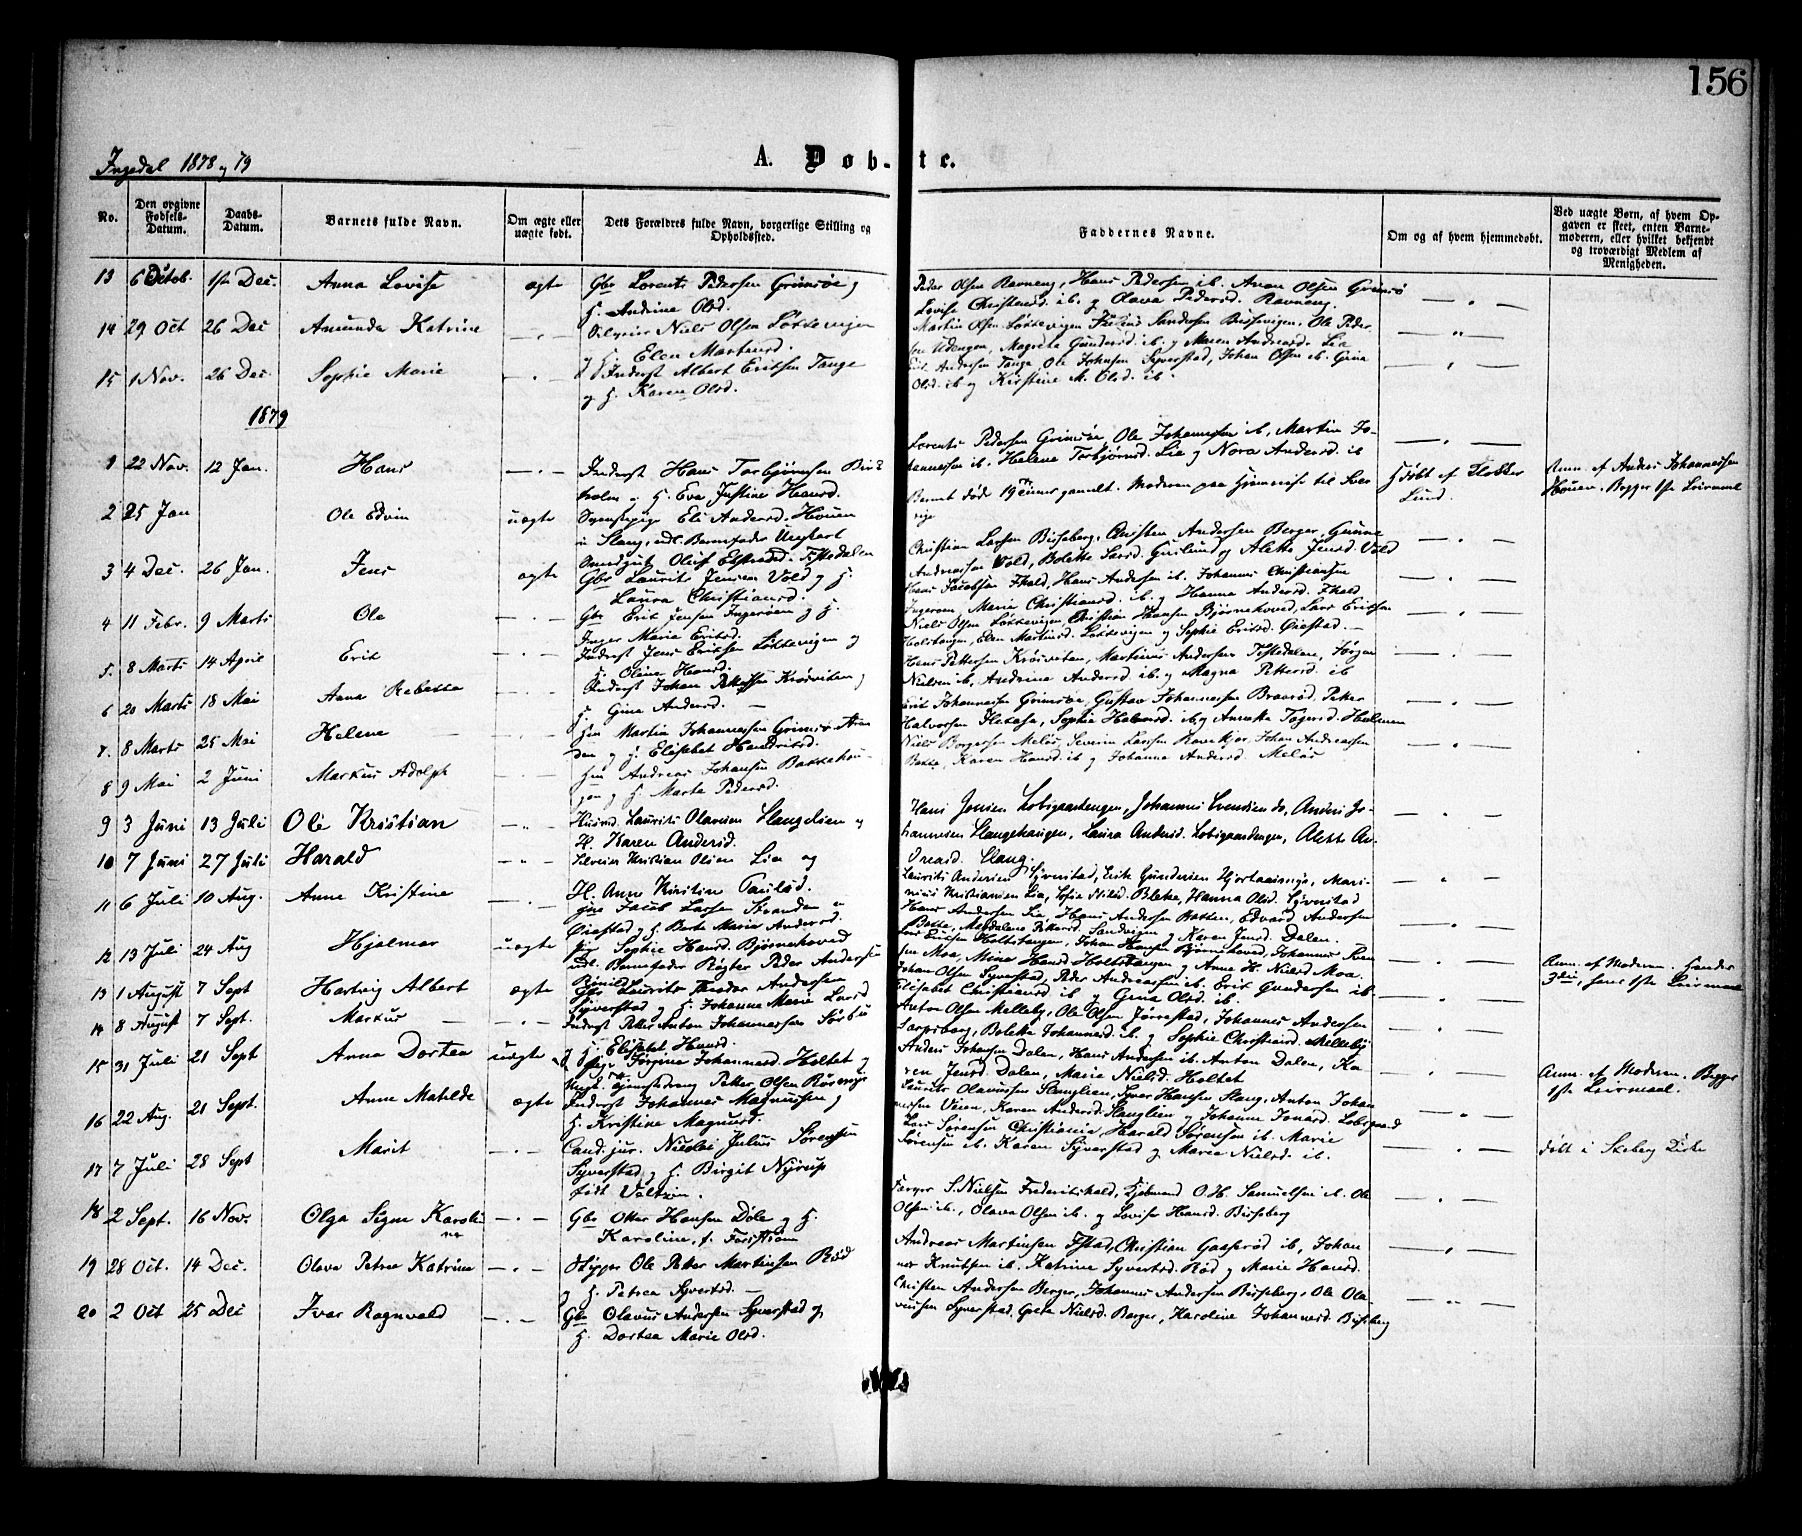 156
Ingedal 1878 og 79
A. Døbte.
No.
Den opgivne Fødsels-Datum.
Daabs-Datum.
Barnets fulde Navn.
Om ægte eller uægte født.
Dets Forældres fulde Navn, borgerlige Stilling og Opholdssted.
Faddernes Navne.
Om og af hvem hjemmedøbt.
Ved uægte Børn, af hvem Opgaven er skeet, enten Barnemoderen, eller hvilket bekjendt og troværdigt Medlem af Menigheden.
13 6 Octob. 1ste Dec. Anna Lovise ægte Gbr Lorents Pedersen Grimsøe og
H. Andrine Olsd.
Peder Olsen Ravneng, Hans Pedersen ib. Anon Olsen Grimsø
Lovise Christensd. ib. og Olava Pedersd. Ravneng.
14 29 Oct 26 Dec Amunda Katrine — " — Niels Olsen Løkkevigen
H. Elen Martinsd.
Martin Olsen Løkkevigen Sandersen Buskevigen, Ole Peder-
sen Udengen, Magrete Gundersd. ib. og Maren Andreasd. Lia
15 1 Nov. 26 Dec Sophie Marie — " — Inderst Albert Eriksen Tange
og H. Karen Olsd.
Andersen Tange, Ole Johnsen Syverstad, Johan Olsen ib. Gina
Olsd. ib og Kirstine M. Olsd. ib.
1879
1 22 Nov. 12 Jan. Hans — " — Inderst Hans Torbjørnsen Birk-
holm og H. Eva Justine Hansd.
Lorents Pedersen Grimsøe, Ole Johannesen ib, Martin Jo-
hannessen ib. Helene Torbjørnsd. Lie og Nora Andersd. ib
2 25 Jan Ole Edvin uægte Eli Andersd. Houen
i Slang, udl. Barnefader Ungkarl
Olaf Tistedalen
Barnet døde 19 timer gammelt. Moderen paa Hjemreise til Sve-
rige
Hjdøbt af Klokker
Lund.
Anm. af Anders Johannessen
Houen. Begges 1ste Leiermaal
3 4 Dec. 26 Jan. Jens ægte Gbr Laurits Jensen Vold og H.
Laura Christiansd.
Christian Larsen Buseberg, Christen Andersen Berger, Gunne
Andreassen Vold, Bolette Larsd. Guslund og Alette Jensd. Vold
4 11 Febr. 9 Marts Ole — " — Gbr Erik Jensen Ingerøen og H.
Inger Maria Eriksd.
Hans Jacobsen Fkald, Hans Andersen ib. Johannes Christiansen
Ingerøen, Maria Christiansd. ib. og Hanna Andersd. Fkald
5. 8 Marts 14 April Erik — " — Inderst Jens Eriksen Løkkevigen og
H. Oline Hansd.
Niels Olsen Løkkevigen, Christian Hansen Bjørnehoved, Lars Eriksen
Holtetangen, Elen Martinsd. Løkkevigen og Sophie Eriksd. Øiestad. —
6 20 Marts 18 Mai Anna Rebekka — " — Inderst Johan Pettersen Krokviken og
H. Gina Andersd. —
Hans Pettersen Krokviken, Martinus Andersen Tistedalen, Jørgen
Nielsen ib, Andrine Andersd. ib. og Magna Pettersd. ib
7. 8 Marts 25 Mai Helene — " — Martin Johannessen Grimsø
og H. Elisabet Hendriksd.
Erik Johannessen Grimsøe, Gustav Johannessen Braarød. Peter
Halvorsen Sophie Halvorsd. ib og Annette Torgersd. Holmen
8 9 Mai 2 Juni Markus Adolph — " — Andreas Johansen Bakkehou-
gen og H. Marte Pedersd.
Niels Borgersen Meløs, Severin Larsen Johan Andreassen
Bakke, Karen Hansd. ib og Johanne Andersd. Meløs
9 3 Juni 13 Juli Ole Kristian — " — Husmd. Laurits Olavesen Slanglien og
H. Karen Andersd.
Hans Jensen Labigaardengen, Johannes Svendsen do, Anders Jo-
hannesen Slangehaugen, Laura Andersd. Labigaardengen, Alette An-
dreasd. Slang.
10 7 Juni 27 Juli Harald — " — Kristian Olsen Lie og
H. Anne Kirstine Paulsd.
Laurits Andersen Syverstad, Erik Gundersen Mari-
nius Kristiansen Lia, Sofie Nilsd. Bløka, Hanna Olsd. Syverstad
11 6 Juli 10 Aug. Anne Kristine — " — Jacob Larsen Stranden
Øiestad og H. Berte Marie Andersd.
Hans Andersen Lie, Hans Andersen Bakken, Edvard Andersen
Bakke, Magdalene Petersd. Sandvigen og Karen Jensd. Dalen.
12 13 Juli 24 Aug Hjalmar uægte Pige Sophie Hansd. Bjørnehoved
udl. Barnefader Røgter Peder Andersen
Lars Eriksen Holtetangen, Johan Hansen Bjørnehoved, Johannes
Moa, Mina Hansd Holtetangen og Anne H. Nielsd. Moa.
Anm. af Moderen.
3die, hans 1ste Leiermaal
13 1 August 7 Sept Hartvig Albert ægte Gbr Laurits Theodor Andersen
Syverstad og H. Johanne Marie Larsd
Johan Olsen Syverstad, Peder Andreassen ib. Erik Gundersen ib.
Elisabet Christiansd ib og Gina Olsd. ib.
14 8 August 7 Sept. Markus — " — Inderst Peter Anton Johannessen Sørbu
og H. Elisabet Hansd.
Anton Olsen Melleby, Ole Olsen Jørrestad, Johannes Andersen
Sarpsborg, Bolette Johannesd. ib. og Sophie Christiansd. Melleby
15 31 Juli 21 Sept Anna Dortea uægte Pige Jørgine Johannesd. Holtet og
Ungk. Tjenestedreng Petter Olsen
Anders Johansen Dalen, Hans Andersen ib. Anton Dalen, Ka-
ren Jensd. Dalen, Marie Nielsd. Holtet
Anm. af Moderen. Begges
1ste Leiermaal.
16 22 Aug. 21 Sept. Anne Matilde ægte Inderst Johannes Magnussen og
H. Kristine Magnusd.
Laurits Olavussen Slanglien, Syver Hansen Slang, Anton Johan-
nessen Veien, Karen Andersd. Slanglien og Johanne Jonasd. Labigaard
17 7 Juli 28 Sept Marit — " — Cand. jur. Nicolai Julius Sørensen
Syverstad og H. Birgit Nyrup
født Voltzin.
Lars Sørensen Christiania, Harald Sørensen ib. Marie
Sørensen ib. Karen Syverstad og Maria Nielsd. ib.
Døbt i Skeberg Kirke
18 2 Sept. 16 Nov. Olga Signe Karoli-
ne — " — Gbr Otter Hansen Døle og H.
Karoline, f.
Farger S. Nielsen Frederikshald, Kjøbmand O. H. Samuelsen ib. Ole
Olsen ib., Olava Olsen ib. og Lovise Hansd. Buseberg
19 28 Oct. 14 Dec. Olava Petrea Katrine — " — Ole Peter Martinsen Rød
og H. Petrea Syversd. —
Andreas Martinsen Christian Gaaserød ib, Johan-
nes Knutsen ib. Katrine Syversd. Rød og Marie Hansd.
20 2 Oct 25 Dec Ivar Ragnvald — " — Gbr Olavus Andersen Syverstad og
H. Dortea Marie Olsd.
Christen Andersen Berger, Johannes Andersen Buseberg, Ole Ola-
vussen Syverstad, Grete Nielsd. Berger, Karoline Johannesd. Buseberg